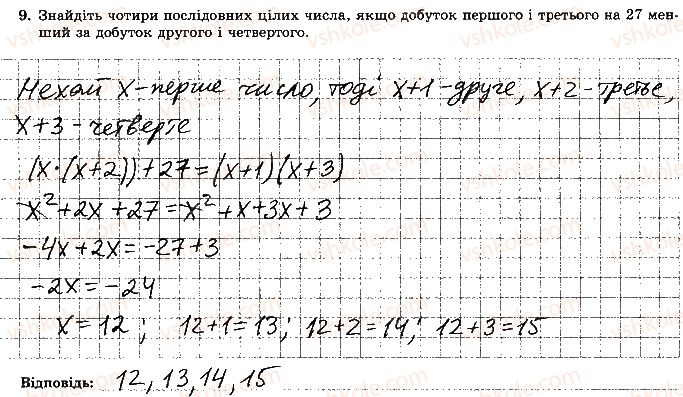 9. Знайдіть чотири послідовних цілих числа, якщо добуток першого і третього на 27 мен-
ший за добуток другого і четвертого.
Нехай x - перше число, тоді x+1 - друге, x+2 - третє,
x+3 - четверте
(x·(x+2))+27=(x+1)(x+3)
x²+2x+27=x²+x+3x+3
-4x+2x=-27+3
-2x=-24
x=12; 12+1=13; 12+2=14; 12+3=15
Відповідь: 12, 13, 14, 15